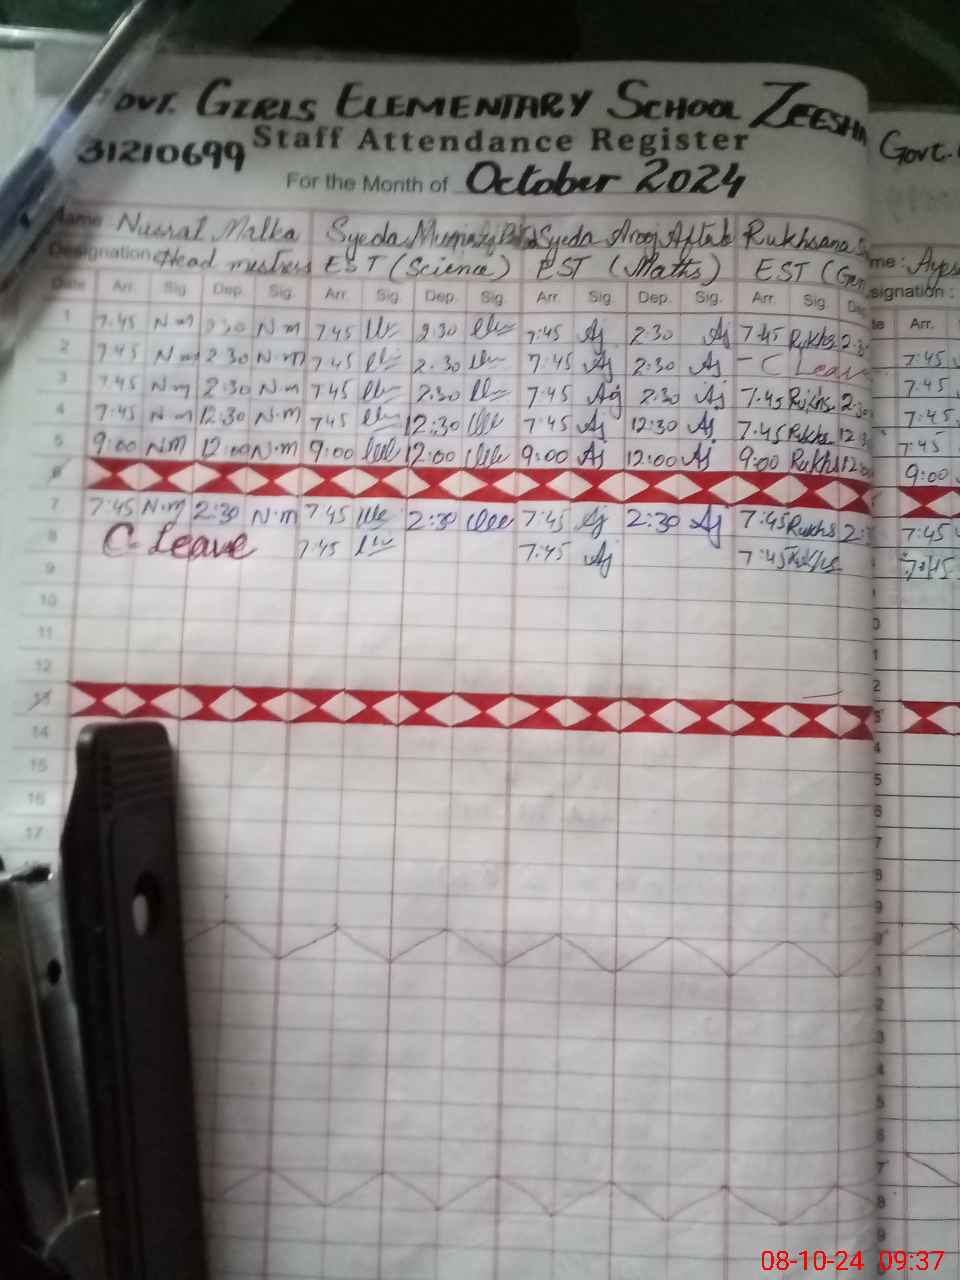 OVT. GIRLS ELEMENTARY SCHOOL ZEESHA
31210699 Staff Attendance Register
For the Month of October 2024
Govt.
Name Nusrat Malka Syeda Syeda Arooj Aftab Rukhsana
Designation Head mestress EST (Science) EST (Maths) EST (Gen
me:
signation:
Date Arr. Sig. Dep. Sig. Arr. Sig. Dep. Sig. Arr. Sig. Dep. Sig. Arr. Sig. Dep Arr.
1 7:45 N.m 2:30 N.m 7:45 2:30 7:45 Aj 2:30 Aj 7:45 Rukhs 2:30
2 7:45 N.m 2:30 N.m 7:45 2:30 7:45 Aj 2:30 Aj - C Leav 7:45
3 7:45 N.m 2:30 N.m 7:45 2:30 7:45 Aj 2:30 Aj 7:45 Rukhs 2:30 7:45
4 7:45 N.m 12:30 N.m 7:45 12:30 7:45 Aj 12:30 Aj 7:45 Rukhs 12:3 7:45
5 9:00 N.m 12:00 N.m 9:00 12:00 9:00 Aj 12:00 Aj 9:00 Rukhs 12:00 7:45
6 9:00
7 7:45 N.m 2:30 N.m 7:45 2:30 7:45 Aj 2:30 Aj 7:45 Rukhs 2:3
8 C-Leave 7:45 7:45 Aj 7:45 Rukhs 7:45
9
10
11
12
13
14
15
16
17
08-10-24 09:37